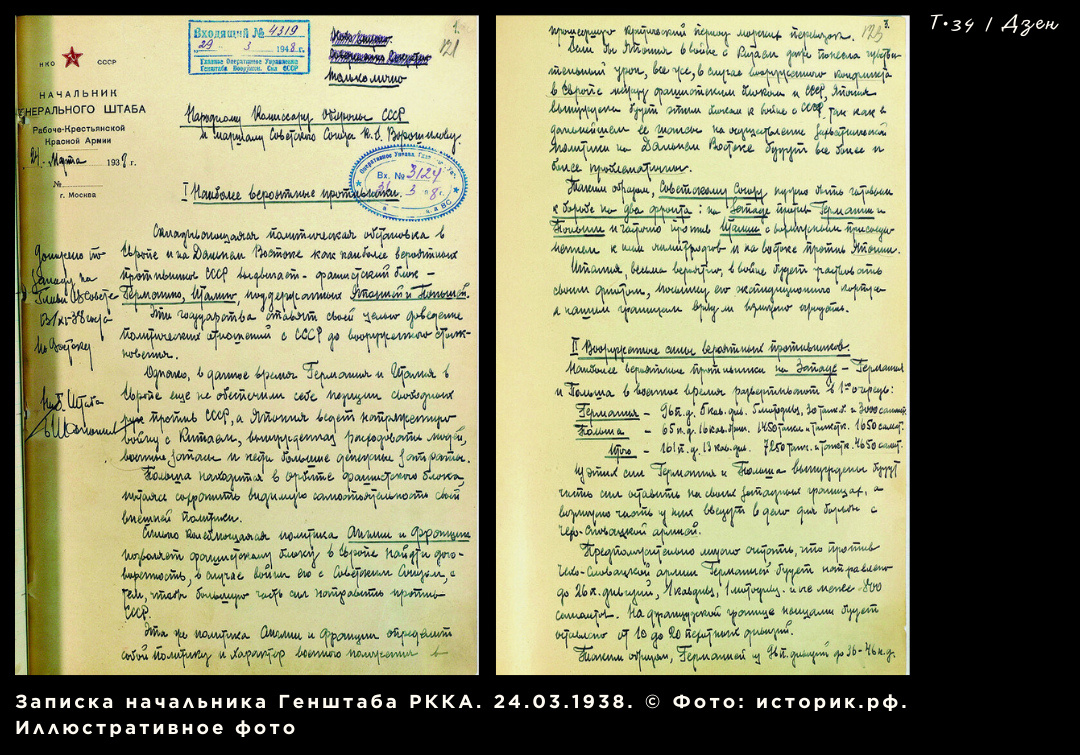 Т-34 | Дзен
НКО СССР
НАЧАЛЬНИК
ГЕНЕРАЛЬНОГО ШТАБА
Рабоче-Крестьянской
Красной Армии
24 Марта 1938 г.
№
г. Москва
Входящий № 4319
29 3 1948 г.
Главное Оперативное Управление
Генштаба Вооружен. Сил СССР
только лично
1.
121
Народному Комиссару Обороны СССР
маршалу Советского Союза К.Е. Ворошилову.
Вх. № 3124
I Наиболее вероятные противники.
Складывающаяся политическая обстановка в
Европе и на Дальнем Востоке как наиболее вероятных
противников СССР выдвигает - фашистский блок -
Германию, Италию, поддержанных Японией и Польшей.
Эти государства ставят своей целью доведение
политических отношений с СССР до вооруженного столк-
новения.
Однако, в данное время Германия и Италия в
Европе еще не обеспечили себе позиции свободных
рук против СССР, а Япония ведет напряженную
войну с Китаем, вынужденная расходовать людей,
военные запасы и нести большие денежные затраты.
Польша находится в орбите фашистского блока,
пытаясь сохранить видимую самостоятельность своей
внешней политики.
Сильно колеблющаяся политика Англии и Франции
позволяет фашистскому блоку в Европе найти дого-
воренность, в случае войны его с Советским Союзом, с
тем, чтобы большую часть сил направить против
СССР.
Эта же политика Англии и Франции определяет
собой политику и характер военного положения в
3.
123
прошедшую критический период морских перевозок.
Если бы Япония в войне с Китаем даже понесла чувстви-
тельный урон, все же, в случае вооруженного конфликта
в Европе между фашистским блоком и СССР, Япония
вынуждена будет этим блоком к войне с СССР, так как в
дальнейшем ее шансы на осуществление захватнической
политики на Дальнем Востоке будут все более и
более проблематичны.
Таким образом, Советскому Союзу нужно быть готовым
к борьбе на два фронта: на Западе против Германии и
Польши и частично против Италии с возможным присоеди-
нением к ним лимитрофов и на востоке против Японии.
Италия, весьма вероятно, в войне будет участвовать
своим флотом, посылку же экспедиционного корпуса
к нашим границам вряд ли можно ожидать.
II Вооруженные силы вероятных противников.
Наиболее вероятные противники на Западе - Германия
и Польша в военное время развертывают в 1ю очередь:
Германия - 96 п.д. 5 кав.див. 5 моторив. 30 танк.б. и 3000 самол.
Польша - 65 п.д. 16 кав.бриг. 1450 танк. и танкетк. 1650 самол.
Итого - 161 п.д. 13 кав.див. 7250 танк. и танкетк. 4650 самол.
Из этих сил Германия и Польша вынуждены будут
часть сил оставить на своих западных границах, а
возможно часть у них введут в дело для борьбы с
Чехо-словацкой армией.
Предположительно можно считать, что против
Чехо-Словацкой армии Германией будет направлено
до 26 п. дивизий, 1 кавдив, 1 моторив. и не менее 800
самолетов. На французской границе немцами будет
оставлено от 10 до 20 пехотных дивизий.
Таким образом, Германией из 96 п. дивизий до 36-46 п.д.
Записка начальника Генштаба РККА. 24.03.1938. © Фото: историк.рф.
Иллюстративное фото